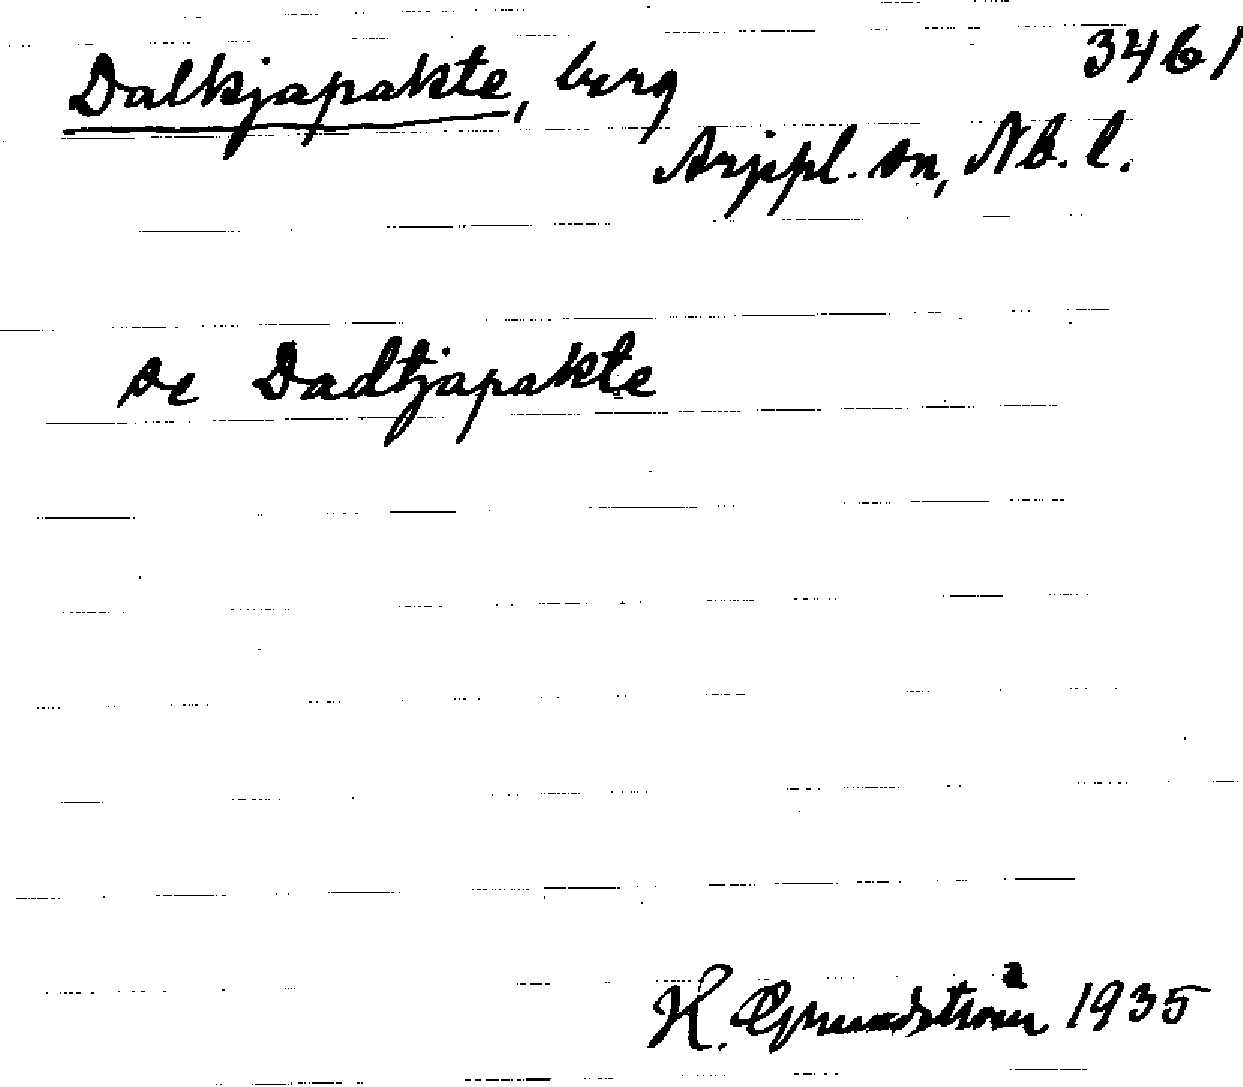 Dalkjapakte, berg 3461
Arjepl. sn, Nb. l.
se Dadtjapakte
H. Grundström 1935